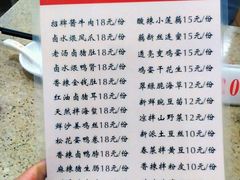 招牌酱牛肉18元/份
卤水煨凤爪18元/份
老汤卤猪肚18元/份
卤水煨鸭胗18元/份
香辣金钱肚18元/份
红油卤猪耳18元/份
天然拌海蜇18元/份
鲜沙姜鸡丝18元/份
松花蛋鸡卷18元/份
香辣卤鸭脖18元/份
麻辣猪生肠18元/份
酸辣小莲藕15元/份
蒜新丝逐蜜15元/份
鸡蛋干花生15元/份
翠绿脆海草12元/份
新鲜豌豆苗12元/份
凉拌山野菜12元/份
新派土豆丝10元/份
春菜拌黄豆10元/份
香辣拌粉皮10元/份